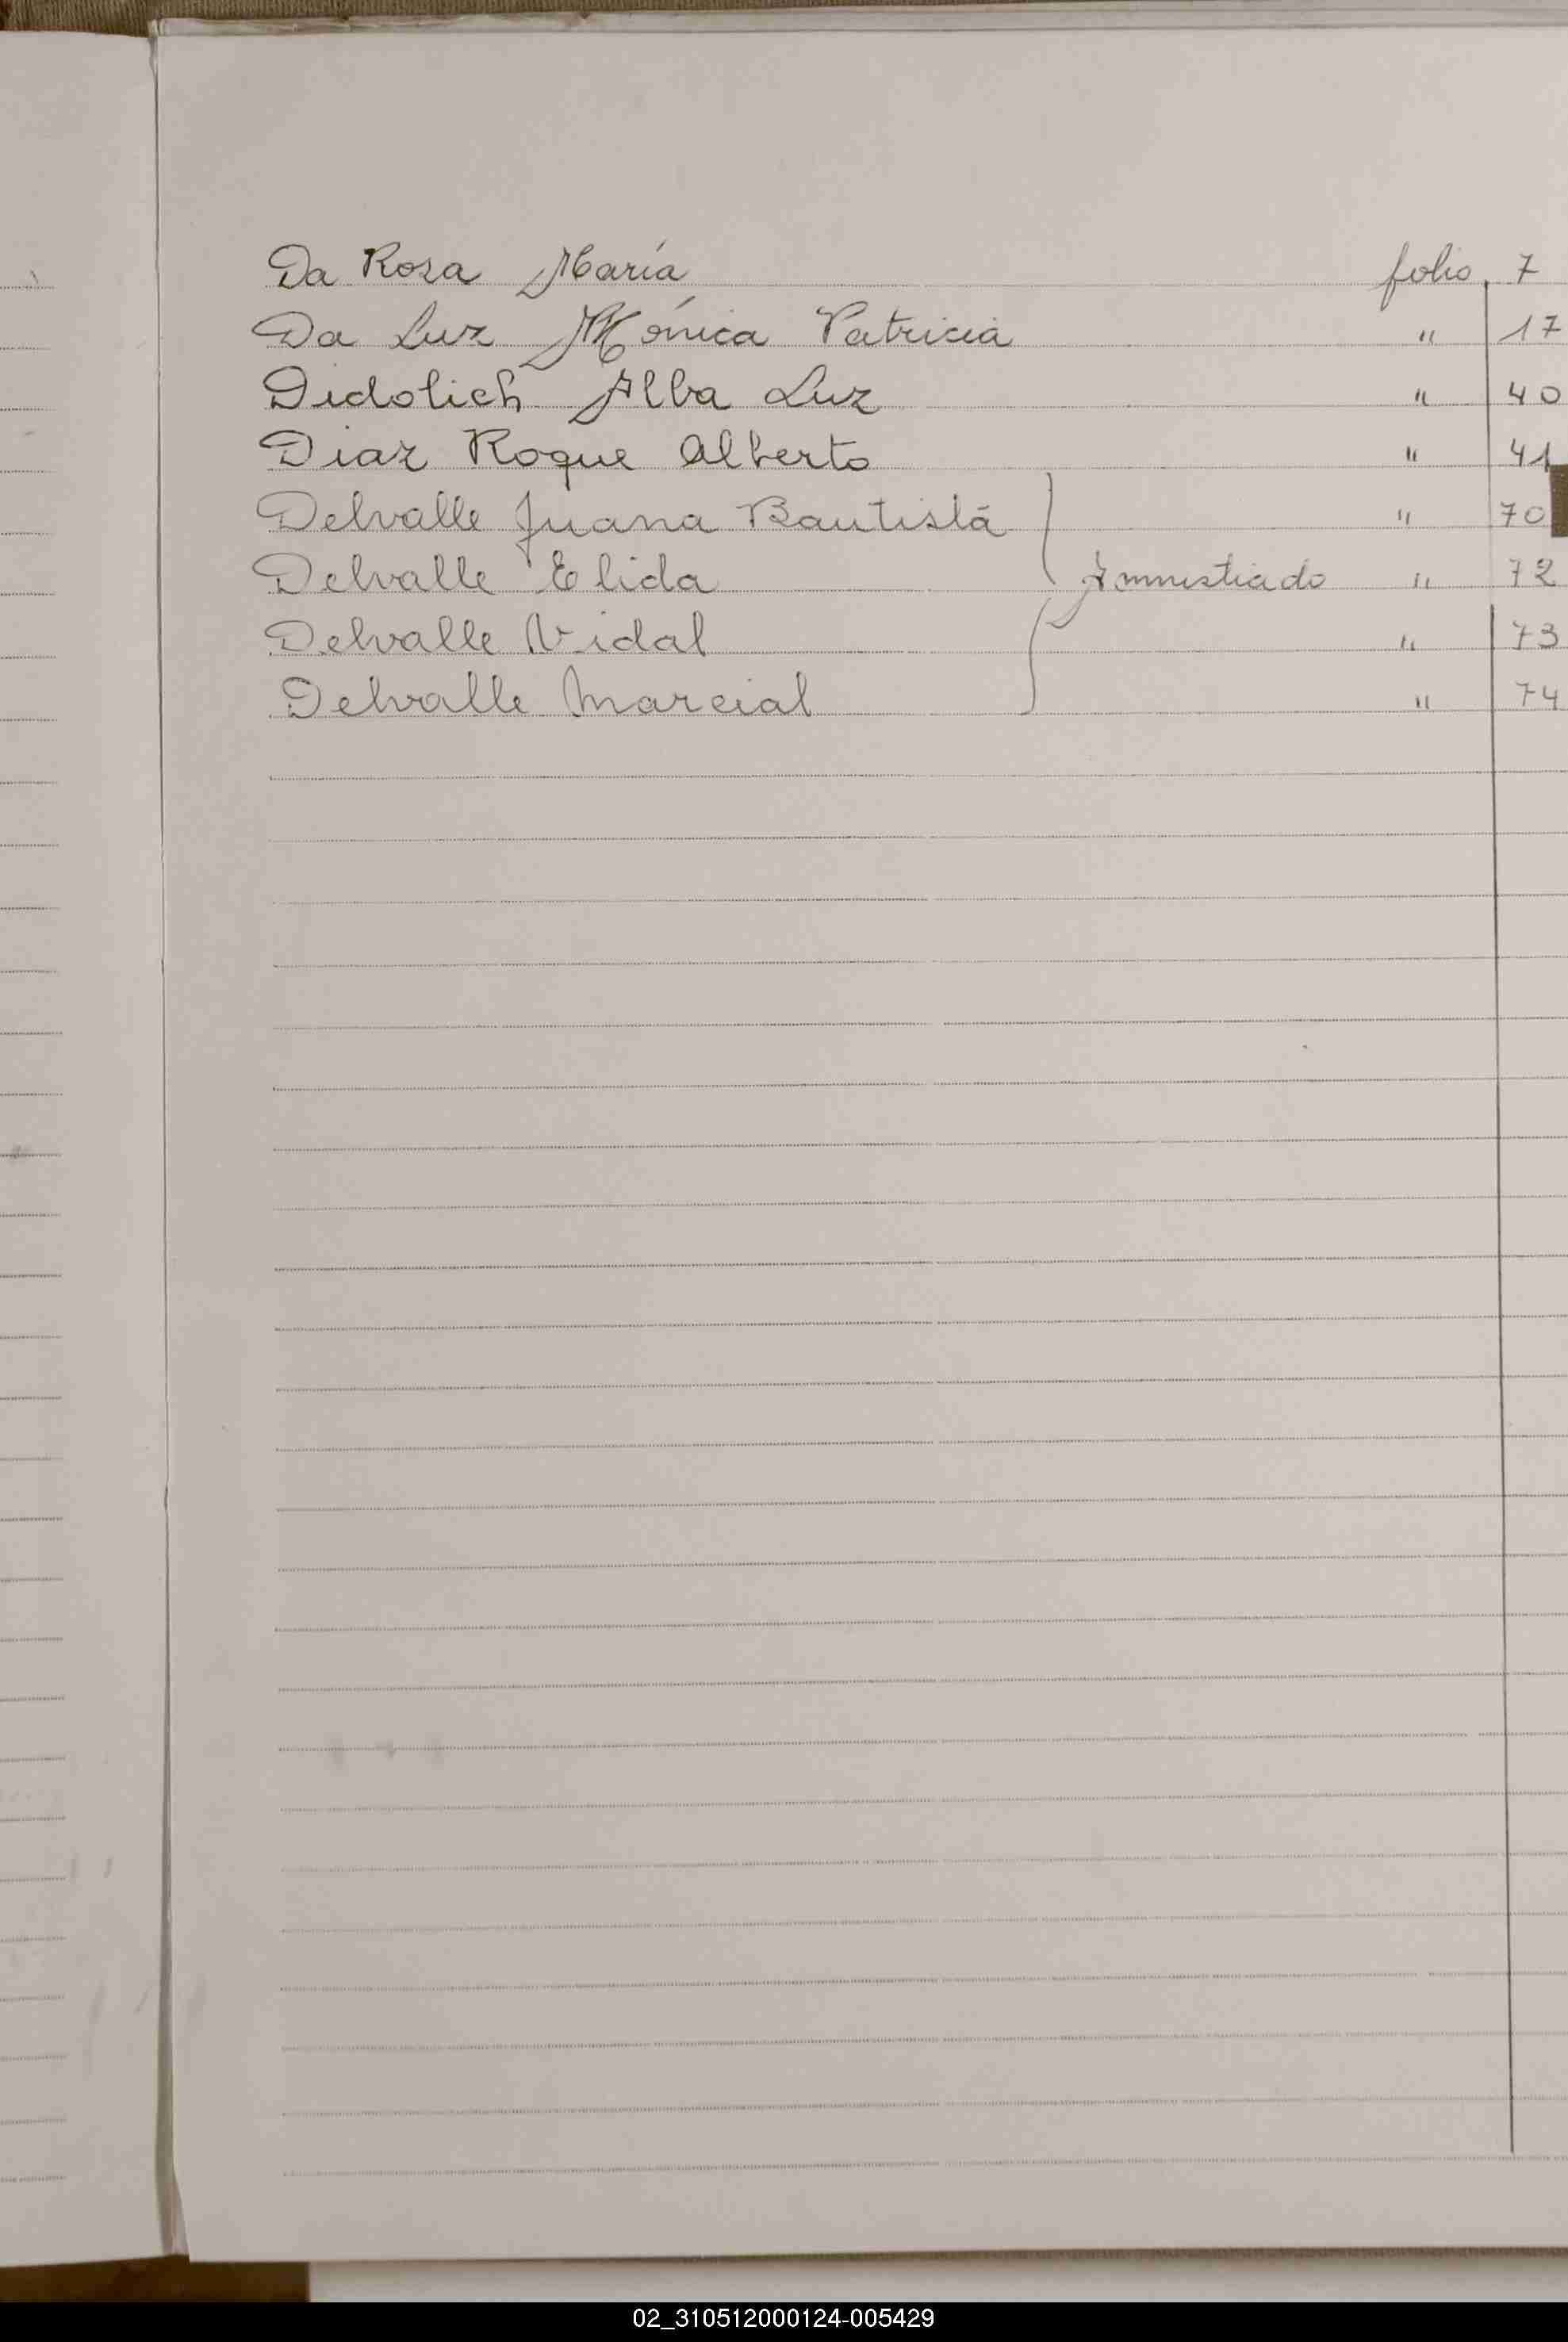 Da Rosa María folio 7
Da Luz Mónica Patricia " 17
Didolich Alba Luz " 40
Diaz Roque Alberto " 41
Delvalle Juana Bautista " 70
Delvalle Elida Amnistiado " 72
Delvalle Vidal " 73
Delvalle Marcial " 74
02_310512000124-005429